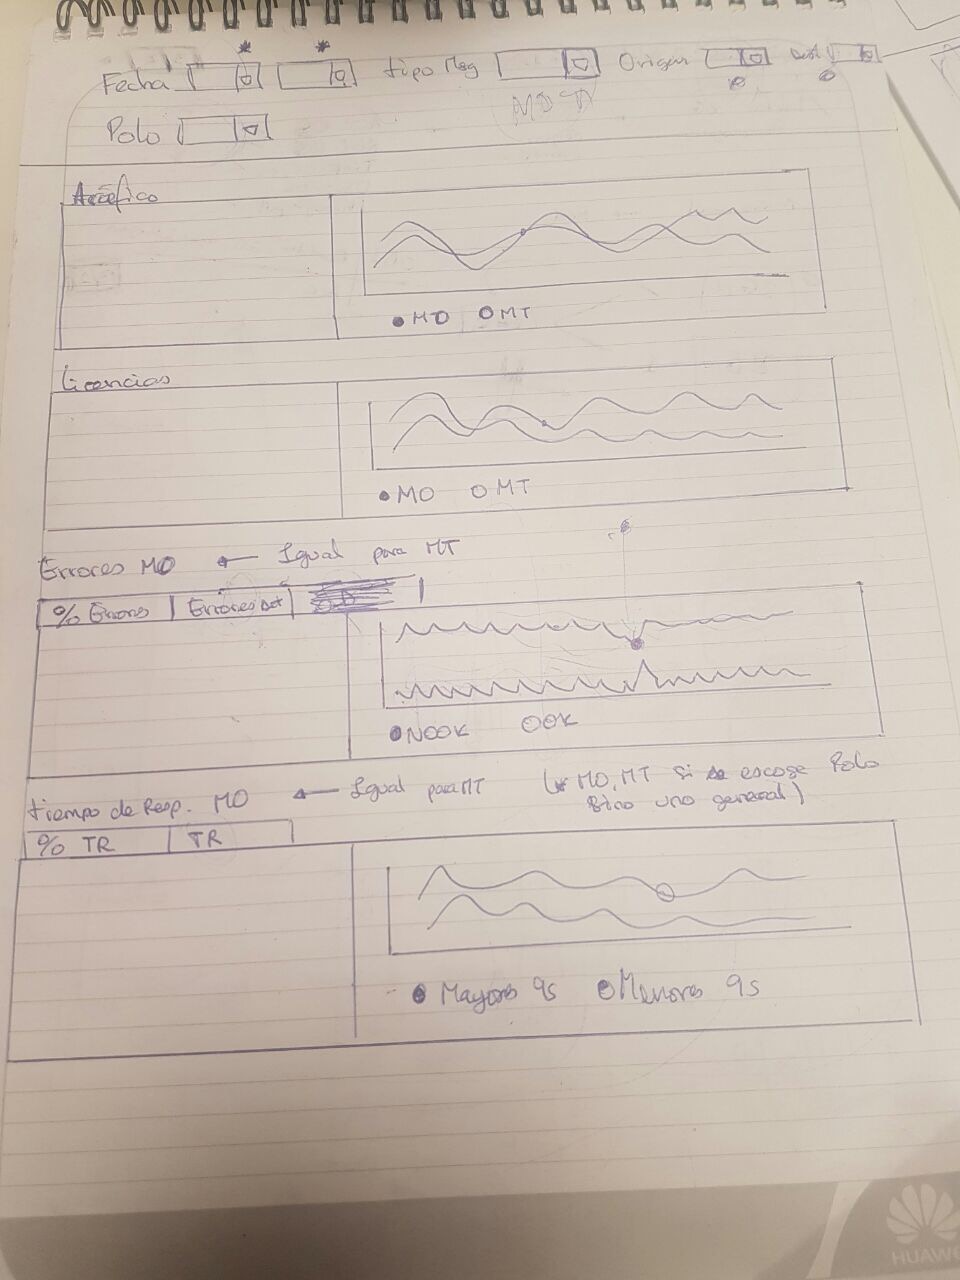 Fecha tipo Msg Origen Dest
MO
Polo
Tráfico
MO MT
Licencias
MO MT
Errores MO ← Igual para MT
% Errores Errores Det
NOOK OOK
tiempo de Resp. MO ← Igual para MT (* MO, MT si se escoge Polo
sino uno general)
% TR TR
Mayores 9s Menores 9s
HUAWE